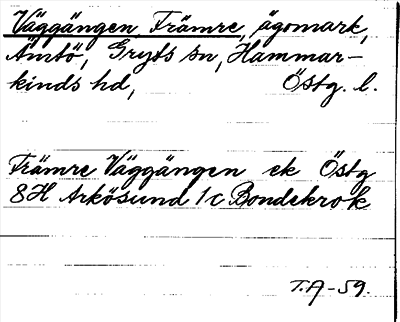 Väggängen Främre, ägomark,
Ämtö, Gryts sn, Hammar-
kinds hd, Östg. l.
Främre Väggängen ek Östg
8H Arkösund 1c Bondekrok
T.A-59.